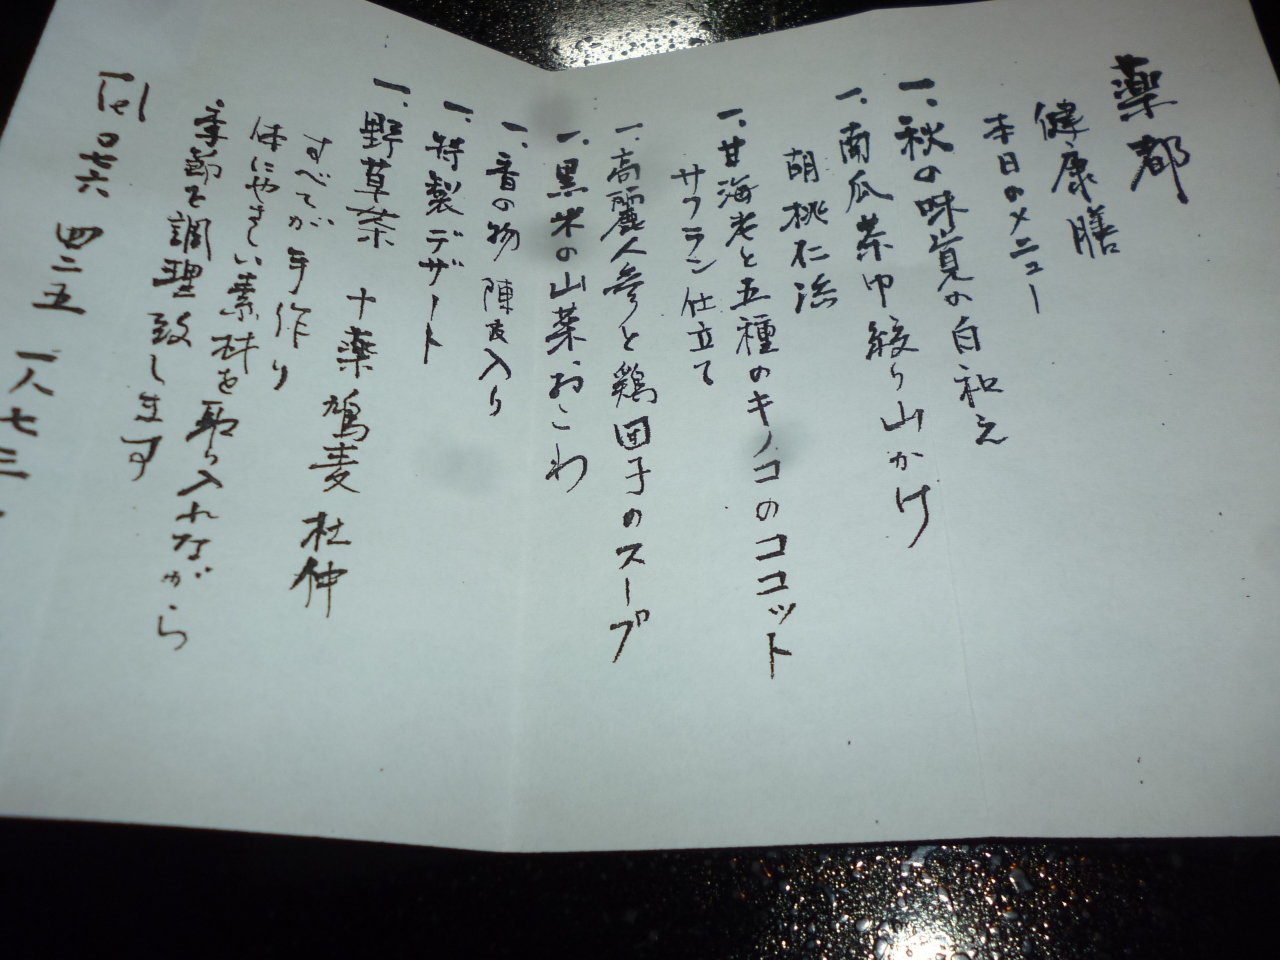 薬都
健康膳
本日のメニュー
一、秋の味覚の白和え
一、南瓜茶巾絞り山かけ
胡桃仁添
一、甘海老と五種のキノコのココット
サフラン仕立て
一、高麗人参と鶏団子のスープ
一、黒米の山菜おこわ
一、香の物 陳皮入り
一、特製デザート
一、野草茶 十薬 鳩麦 杜仲
すべてが手作り
体にやさしい素材を取り入れながら
季節を調理致します
Tel 〇七六 四二五 一八七三